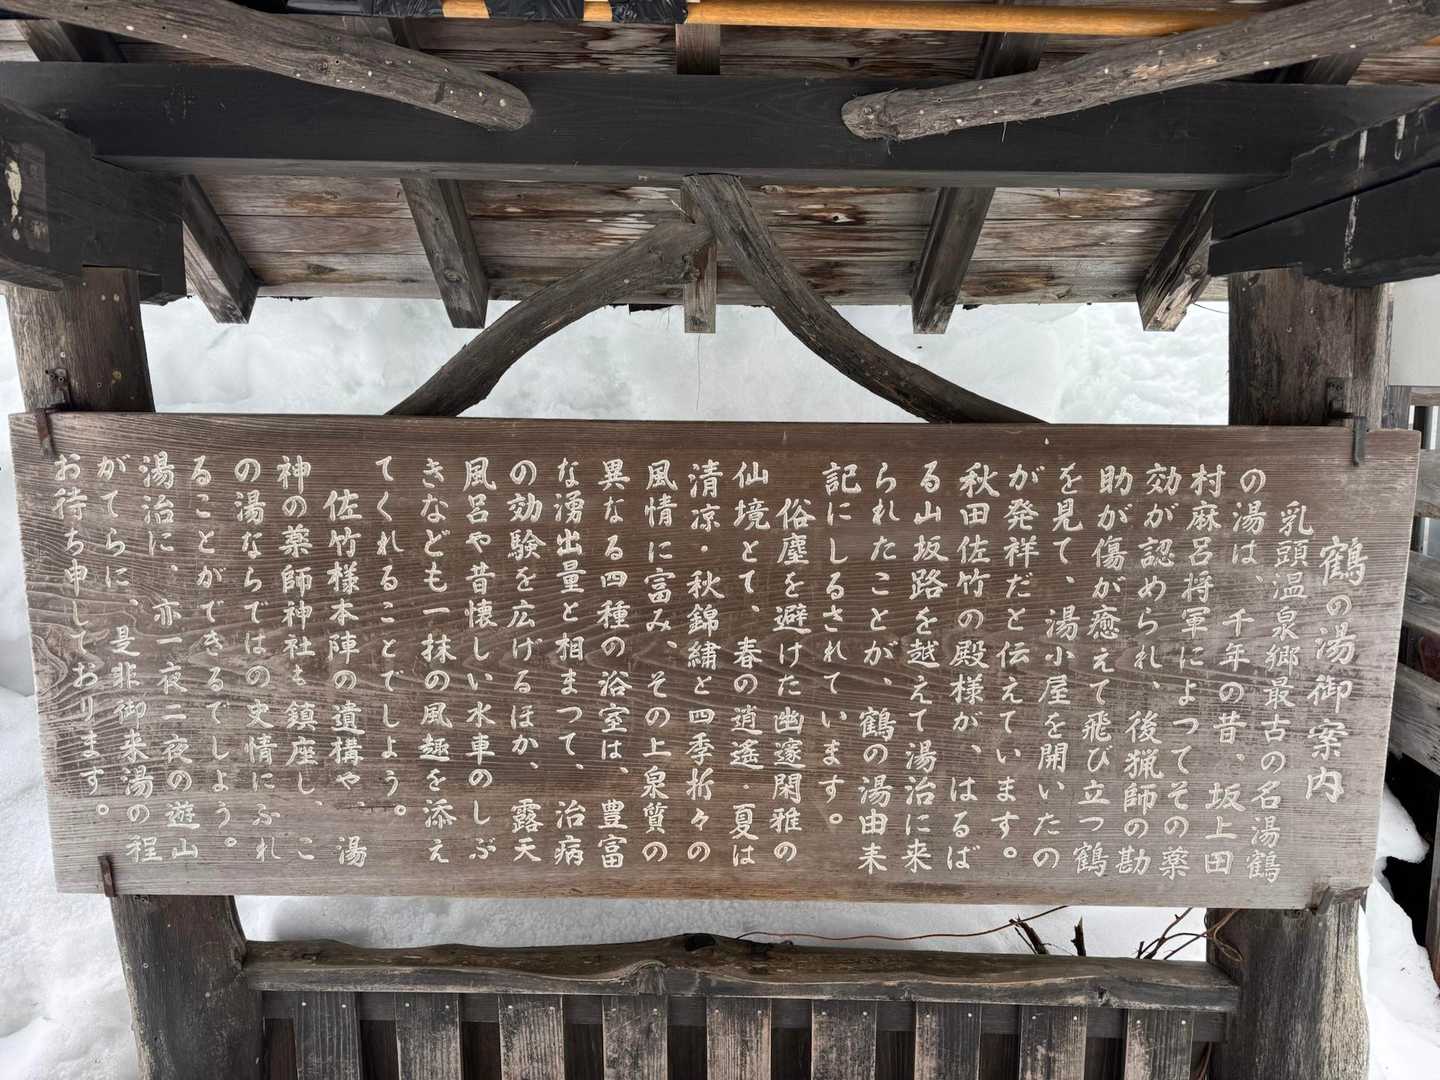 鶴の湯御案内
乳頭温泉郷最古の名湯鶴
の湯は、千年の昔、坂上田
村麻呂将軍によつてその薬
効が認められ、後猟師の勘
助が傷が癒えて飛び立つ鶴
を見て、湯小屋を開いたの
が発祥だと伝えています。
秋田佐竹の殿様が、はるば
る山坂路を越えて湯治に来
られたことが、鶴の湯由来
記にしるされています。
俗塵を避けた幽邃閑雅の
仙境とて、春の逍遙・夏は
清涼・秋錦繍と四季折々の
風情に富み、その上泉質の
異なる四種の浴室は、豊富
な湧出量と相まつて、治病
の効験を広げるほか、露天
風呂や昔懐しい水車のしぶ
きなども一抹の風趣を添え
てくれることでしょう。
佐竹様本陣の遺構や、湯
神の薬師神社も鎮座し、こ
の湯ならではの史情にふれ
ることができるでしよう。
湯治に、亦一夜二夜の遊山
がてらに、是非御来湯の程
お待ち申しております。